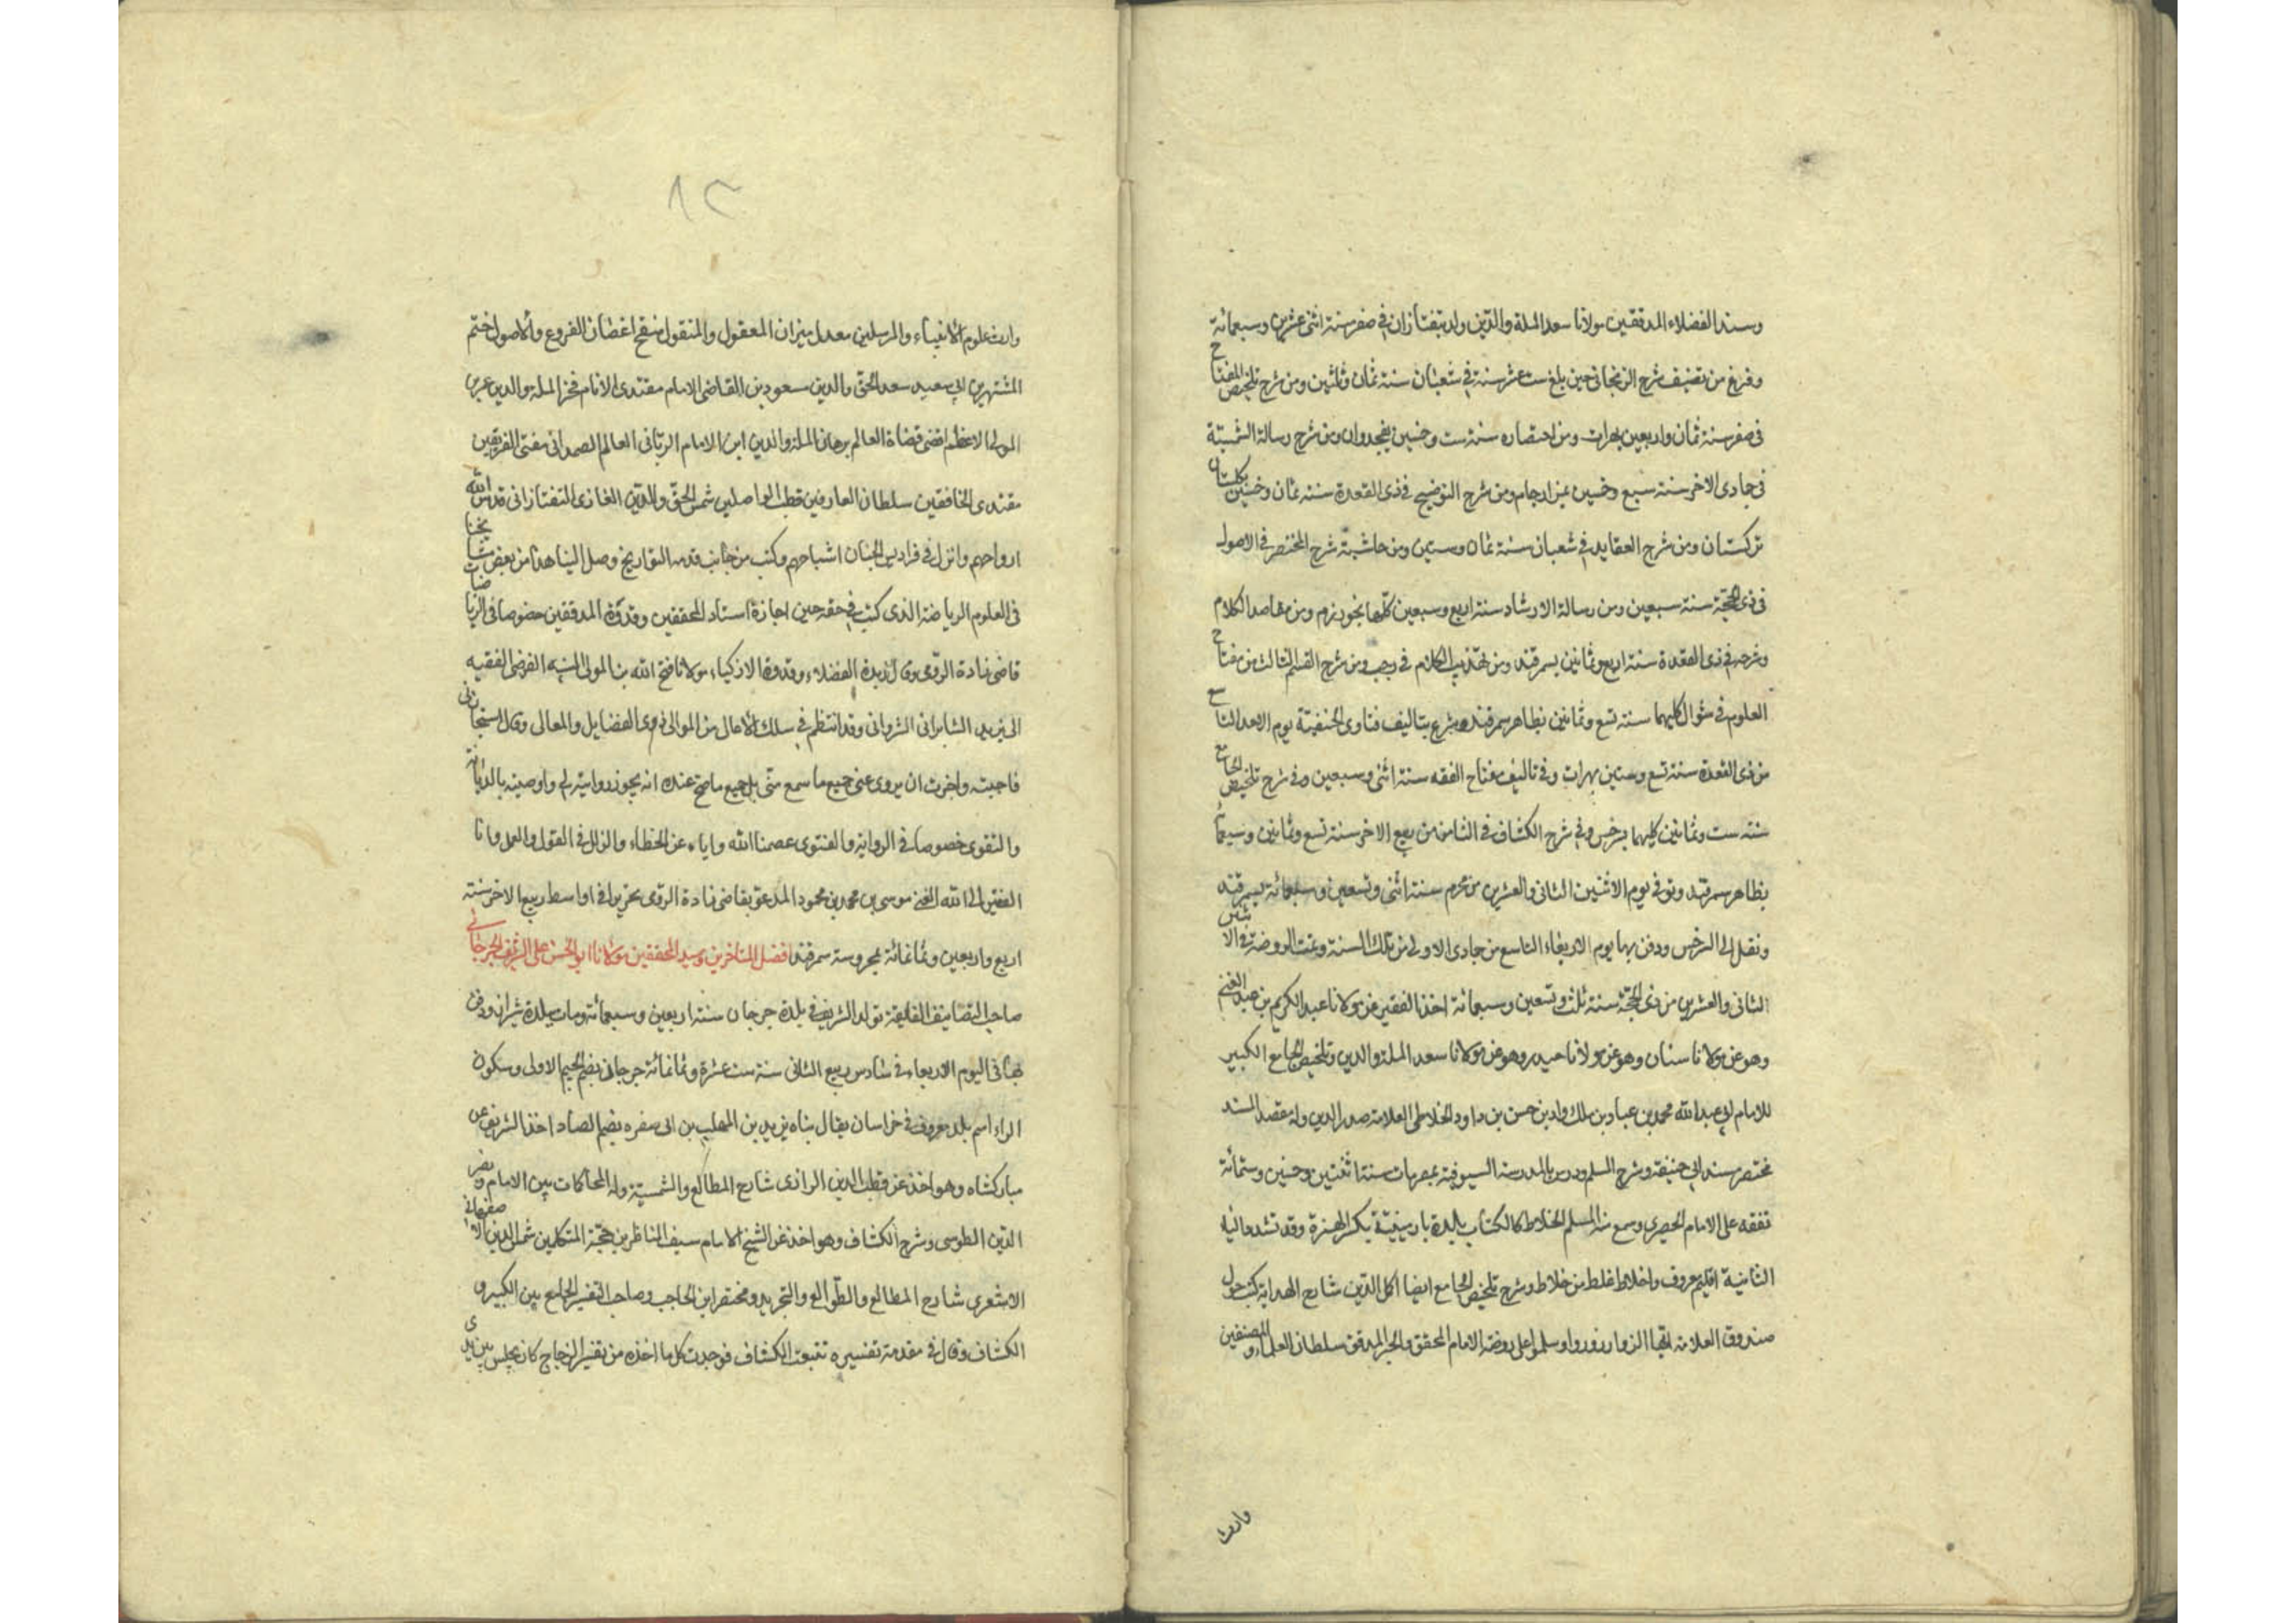 وسند الفضلاء المدققين مولانا سعد الملة والدين ولد بتفتازان في صفر سنة اثنى عشرين وسبعمائة
وفرغ من تصنيف شرح الزنجاني حين بلغ ست عشر سنة في شعبان سنة ثمان وثلثين ومن شرح تلخيص المفتاح
في صفر سنة ثمان واربعين بهرات ومن اختصاره سنة ست وخمسين بغجدوان ومن شرح رسالة الشمسية
في جمادى الاخر سنة سبع وخمسين بمزارجام ومن شرح التوضيح في ذى القعدة سنة ثمان وخمسين بكلستان
تركستان ومن شرح العقايد في شعبان سنة ثمان وستين ومن حاشية شرح المختصر في الاصول
في ذى الحجة سنة سبعين ومن رسالة الارشاد سنة اربع وسبعين كلها بخوارزم ومن مقاصد الكلام
وشرحه في ذى القعدة سنة اربع وثمانين بسمرقند ومن تهذيب الكلام في رجب ومن شرح القسم الثالث من مفتاح
العلوم في شوال كليهما سنة تسع وثمانين بظاهر سمرقند وشرع بتاليف فتاوى الحنفية يوم الاحد التاسع
من ذى القعدة سنة تسع وستين بهرات وفي تاليف مفتاح الفقه سنة اثنى وسبعين وفي شرح تلخيص الجامع
سنة ست وثمانين كليهما بسرخس وفي شرح الكشاف في الثامن من ربيع الاخر سنة تسع وثمانين وسبعمائة
بظاهر سمرقند وتوفي يوم الاثنين الثاني والعشرين من محرم سنة اثنى وتسعين وسبعمائة بسمرقند
ونقل الى السرخس ودفن بها يوم الاربعاء التاسع من جمادى الاولى من تلك السنة وتمت الروضة في الاثنين
الثاني والعشرين من ذى الحجة سنة ثلث وتسعين وسبعمائة اخذ الفقير عن مولانا عبد الكريم بن عبد الغني
وهو عن مولانا سنان وهو عن مولانا حيدر وهو عن مولانا سعد الملة والدين وتلخيص الجامع الكبير
للامام ابي عبد الله محمد بن عباد بن ملك داد بن حسن بن داود الخلاطى العلامة صدر الدين وله مقصد المسند
مختصر مسند ابي حنيفة وشرح المسلم ودرس بالمدرسة السيوفية بمصر مات سنة اثنتين وخمسين وستمائة
تفقه على الامام الحصيرى وسمع منه المسلم الخلاط كالكتاب بلدة بارمينية بكسر الهمزة وقد تشد ياؤه
الثانية اقليم معروف واخلاط غلط من خلاط وشرح تلخيص الجامع ايضا اكمل الدين شارح الهداية كتب حول
صندوق العلامة ايها الزوار زوروا وسلموا على روضة الامام المحقق والحبر المدقق سلطان العلماء والمصنفين
وارث
٨٣
وارث علوم الانبياء والمرسلين معدل ميزان المعقول والمنقول منقح اغصان الفروع والاصول ختم
المشتهرين ابي سعيد سعد الحق والدين مسعود بن القاضى الامام مقتدى الانام فخر الملة والدين عمر بن
المولى الاعظم اقضى قضاة العالم برهان الملة والدين ابن الامام الربانى العالم الصمدانى مفتى الفريقين
مقتدى الخافقين سلطان العارفين قطب الواصلين شمس الحق والدين الغازى التفتازانى قدس الله
ارواحهم وانزل في فراديس الجنان اشباحهم وكتب من جانب قدمه التواريخ وصل الينا هذا من بعض مشايخنا
في العلوم الرياضة الذى كتب في حقه حين اجازة استاد المحققين وقدوة المدققين خصوصا في الرياضيات
قاضى زادة الرومى وقال زبدة الفضلاء وقدوة الازكياء مولانا فتح الله بن المولى النبيه الفرضى الفقيه
الى يزيد الشابرانى الشروانى وقد انتظم في سلك الاعالى من الموالى ذوى الفضايل والمعالى وقال استجازنى
فاجبته واجزت ان يروى عنى جميع ما سمع منى بل جميع ما صح عنده انه يجوز روايته لى واوصيته بالديانة
والتقوى خصوصا في الرواية والفتوى عصمنا الله واياه عن الخطاء والزلل في القول والعمل وانا
الفقير الى الله الغنى موسى بن محمد بن محمود المدعو بقاضى زادة الرومى تحريرا في اواسط ربيع الاخر سنة
اربع واربعين وثمانمائة بمحروسة سمرقند افضل المتاخرين وسيد المحققين مولانا ابو الحسن على الشريف الجرجانى
صاحب التصانيف الفايقة تولد الشريف في بلدة جرجان سنة اربعين وسبعمائة ومات ببلدة شيراز ودفن
بها في اليوم الاربعاء في سادس ربيع الثانى سنة ست عشرة وثمانمائة جرجان بضم الجيم الاولى وسكون
الراء اسم بلد معروف في خراسان يقال بناه يزيد بن المهلب بن ابى صفره بضم الصاد اخذ الشريف عن
مباركشاه وهو اخذ عن قطب الدين الرازى شارح المطالع والشمسية وله المحاكمات بين الامام ونصر
الدين الطوسى وشرح الكشاف وهو اخذ عن الشيخ الامام سيف الناظرين حجة المتكلمين شمس الدين الاصفهانى
الاشعرى شارح المطالع والطوالع والتجريد ومختصر ابن الحاجب وصاحب التفسير الجامع بين الكبير و
الكشاف وقال في مقدمة تفسيره تتبعت الكشاف فوجدت كل ما اخذه من تفسير الزجاج كان يجلس بين يدى